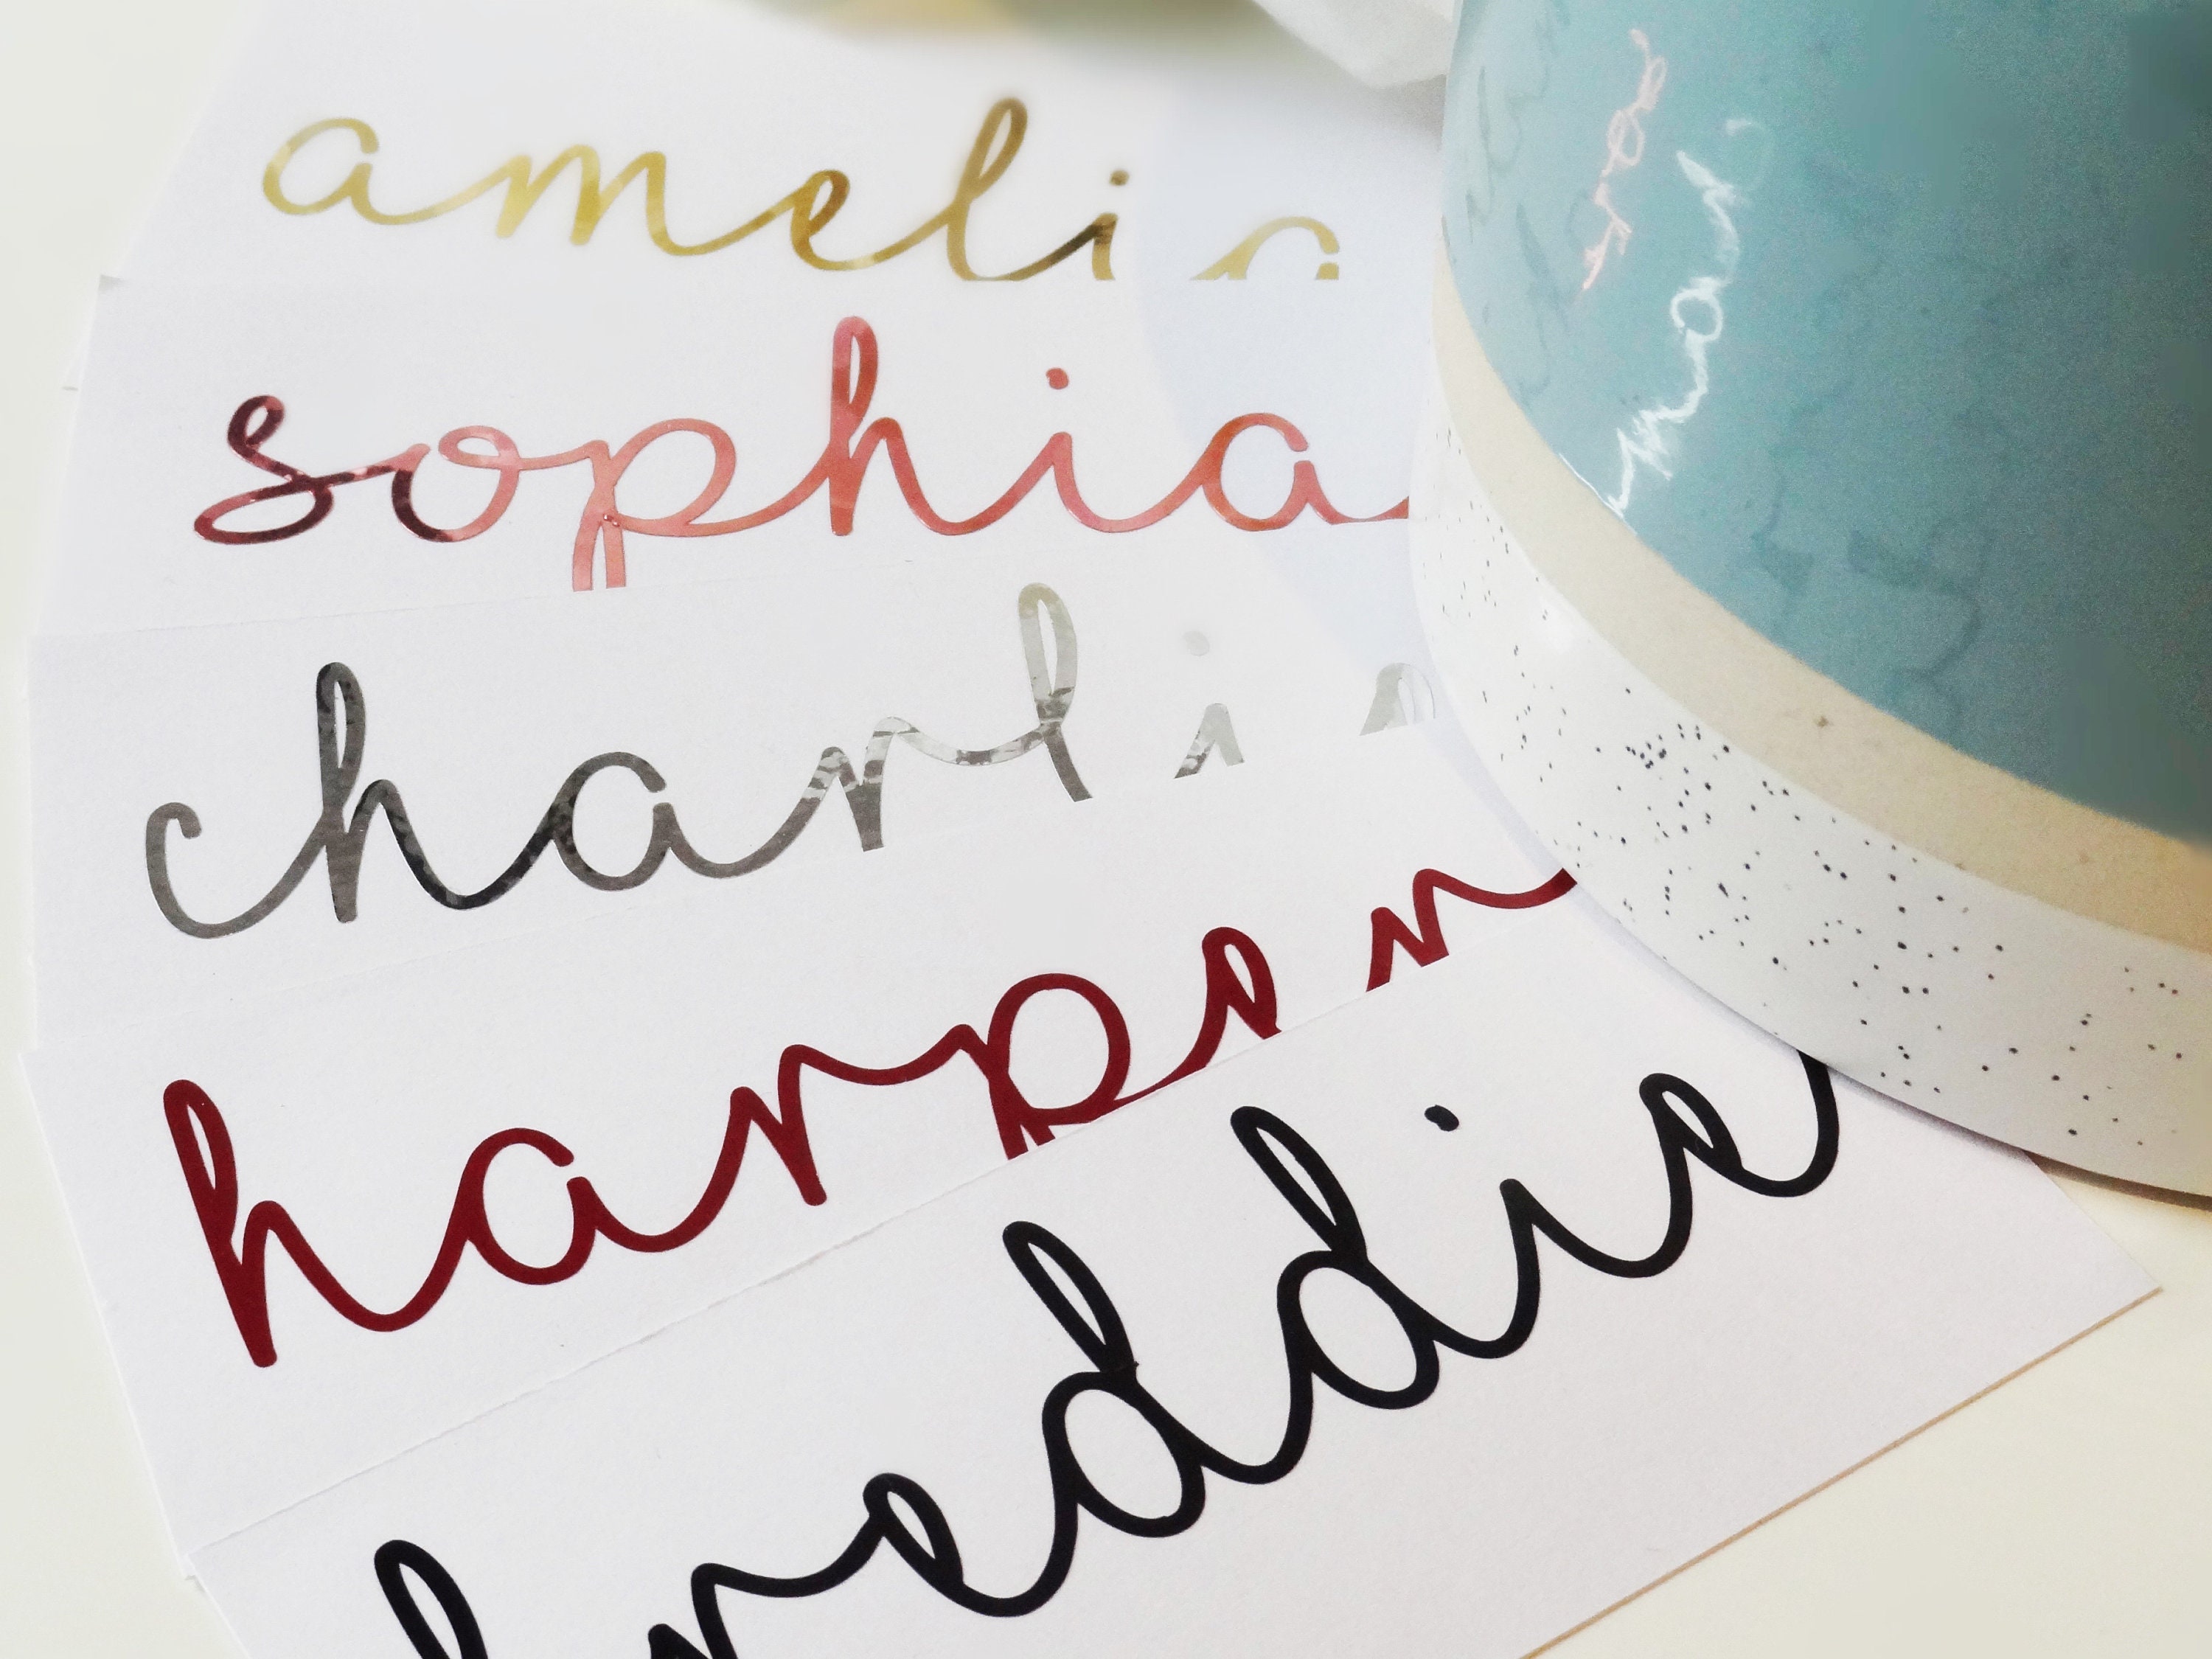 amelia
sophia
charlie
harper
freddie